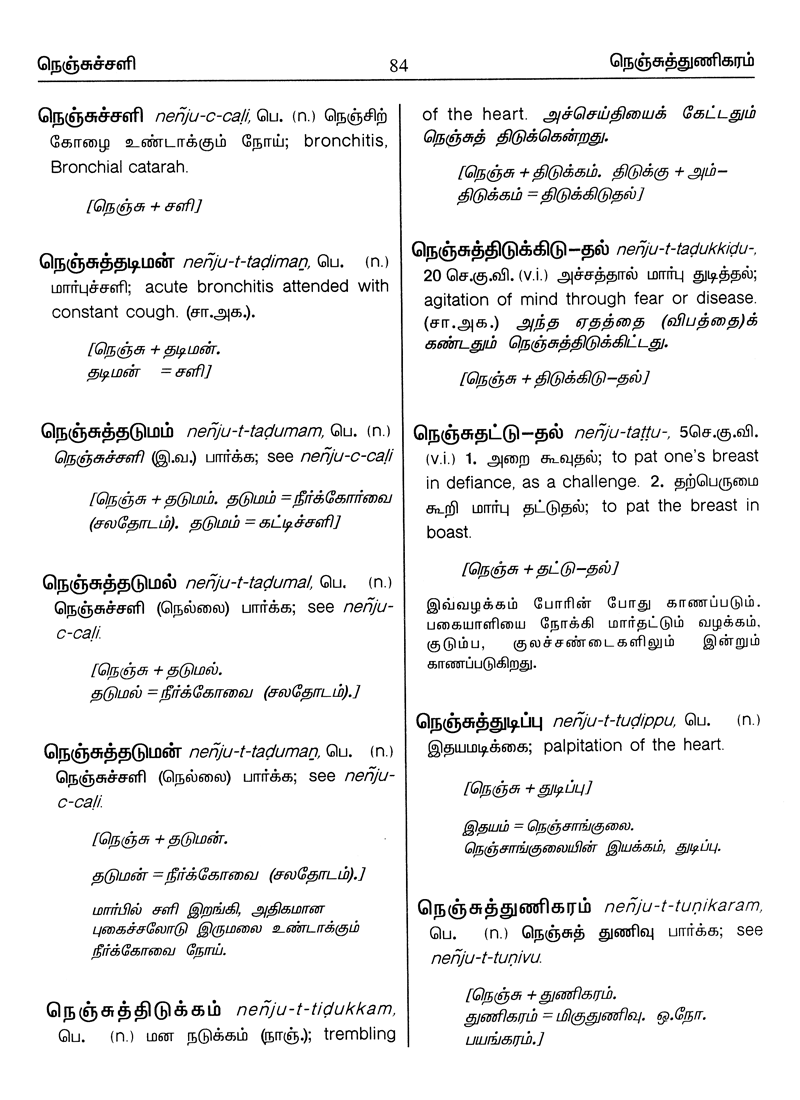 நெஞ்சுச்சளி
84
நெஞ்சுத்துணிகரம்
நெஞ்சுச்சளி neñju-c-caḷi, பெ. (n.) நெஞ்சிற்
கோழை உண்டாக்கும் நோய்; bronchitis,
Bronchial catarah.
[நெஞ்சு + சளி]
நெஞ்சுத்தடிமன் neñju-t-taḍimaṉ, பெ. (n.)
மார்புச்சளி; acute bronchitis attended with
constant cough. (சா.அக.).
[நெஞ்சு + தடிமன்.
தடிமன் = சளி]
நெஞ்சுத்தடுமம் neñju-t-taḍumam, பெ. (n.)
நெஞ்சுச்சளி (இ.வ.) பார்க்க; see neñju-c-caḷi
[நெஞ்சு + தடுமம். தடுமம் = நீர்க்கோர்வை
(சலதோடம்). தடுமம் = கட்டிச்சளி]
நெஞ்சுத்தடுமல் neñju-t-taḍumal, பெ. (n.)
நெஞ்சுச்சளி (நெல்லை) பார்க்க; see neñju-
c-caḷi.
[நெஞ்சு + தடுமல்.
தடுமல் = நீர்க்கோவை (சலதோடம்).]
நெஞ்சுத்தடுமன் neñju-t-taḍumaṉ, பெ. (n.)
நெஞ்சுச்சளி (நெல்லை) பார்க்க; see neñju-
c-caḷi.
[நெஞ்சு + தடுமன்.
தடுமன் = நீர்க்கோவை (சலதோடம்).]
மார்பில் சளி இறங்கி, அதிகமான
புகைச்சலோடு இருமலை உண்டாக்கும்
நீர்க்கோவை நோய்.
நெஞ்சுத்திடுக்கம் neñju-t-tiḍukkam,
பெ. (n.) மன நடுக்கம் (நாஞ்.); trembling
of the heart. அச்செய்தியைக் கேட்டதும்
நெஞ்சுத் திடுக்கென்றது.
[நெஞ்சு + திடுக்கம். திடுக்கு + அம்–
திடுக்கம் = திடுக்கிடுதல்]
நெஞ்சுத்திடுக்கிடு–தல் neñju-t-taḍukkiḍu-,
20 செ.கு.வி. (v.i.) அச்சத்தால் மார்பு துடித்தல்;
agitation of mind through fear or disease.
(சா.அக.) அந்த ஏதத்தை (விபத்தை)க்
கண்டதும் நெஞ்சுத்திடுக்கிட்டது.
[நெஞ்சு + திடுக்கிடு–தல்]
நெஞ்சுதட்டு–தல் neñju-taṭṭu-, 5செ.கு.வி.
(v.i.) 1. அறை கூவுதல்; to pat one's breast
in defiance, as a challenge. 2. தற்பெருமை
கூறி மார்பு தட்டுதல்; to pat the breast in
boast.
[நெஞ்சு + தட்டு–தல்]
இவ்வழக்கம் போரின் போது காணப்படும்.
பகையாளியை நோக்கி மார்தட்டும் வழக்கம்,
குடும்ப, குலச்சண்டைகளிலும் இன்றும்
காணப்படுகிறது.
நெஞ்சுத்துடிப்பு neñju-t-tuḍippu, பெ. (n.)
இதயமடிக்கை; palpitation of the heart.
[நெஞ்சு + துடிப்பு]
இதயம் = நெஞ்சாங்குலை.
நெஞ்சாங்குலையின் இயக்கம், துடிப்பு.
நெஞ்சுத்துணிகரம் neñju-t-tuṇikaram,
பெ. (n.) நெஞ்சுத் துணிவு பார்க்க; see
neñju-t-tuṇivu.
[நெஞ்சு + துணிகரம்.
துணிகரம் = மிகுதுணிவு. ஒ.நோ.
பயங்கரம்.]